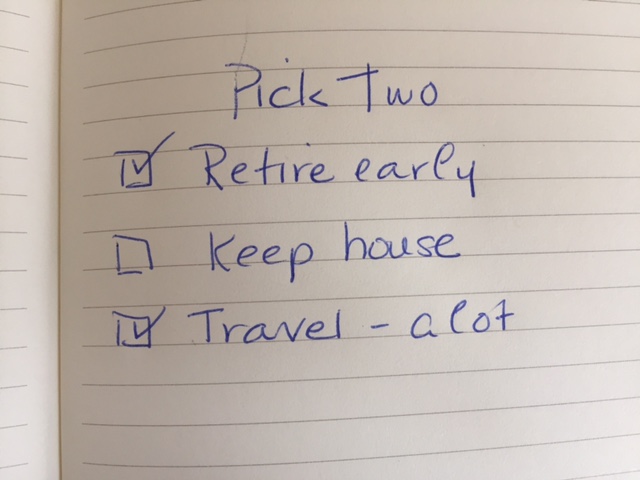 Pick Two
Retire early
Keep house
Travel - a lot